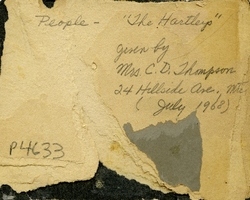 People - "The Hartleys"
given by
Mrs C. D. Thompson
24 Hillside Ave,
( July 1968)
P4633